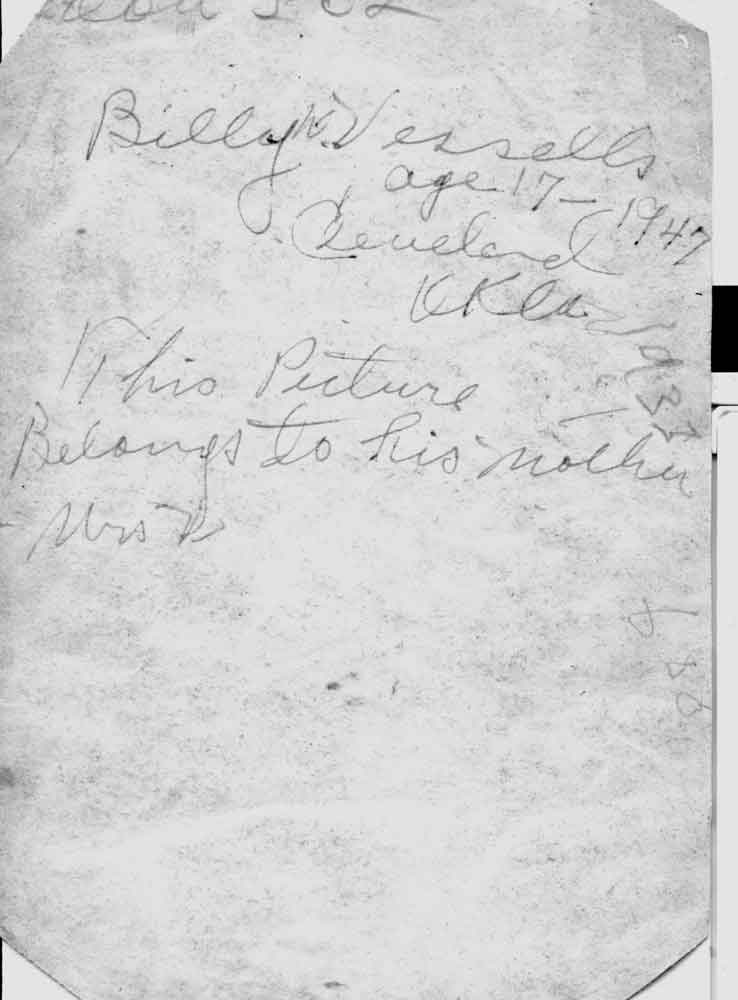 Billy Vessells
age 17 - 1947
Cleveland
Okla
This Picture
Belongs to his mother
Mrs